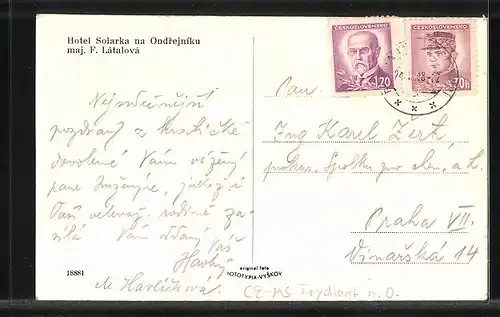 Hotel Solarka na Ondřejníku
maj. F. Látalová
ČESKOSLOVENSKO
1·20
ČESKOSLOVENSKO
70h
Pan
Nejsrdečnější
pozdravy z krátičké
dovolené Vám vážený
pane Inženýre, jakož i
Vaší veleváž. rodině
Vám oddaný Váš
Havlí
M Havlíčková.
Ing Karel
prokur. Spolku pro chem. a h.
Praha VII.
Vinařská 14
18881
original foto
FOTOTYPIA-VYŠKOV
CZ-MS Frýdlant n. O.